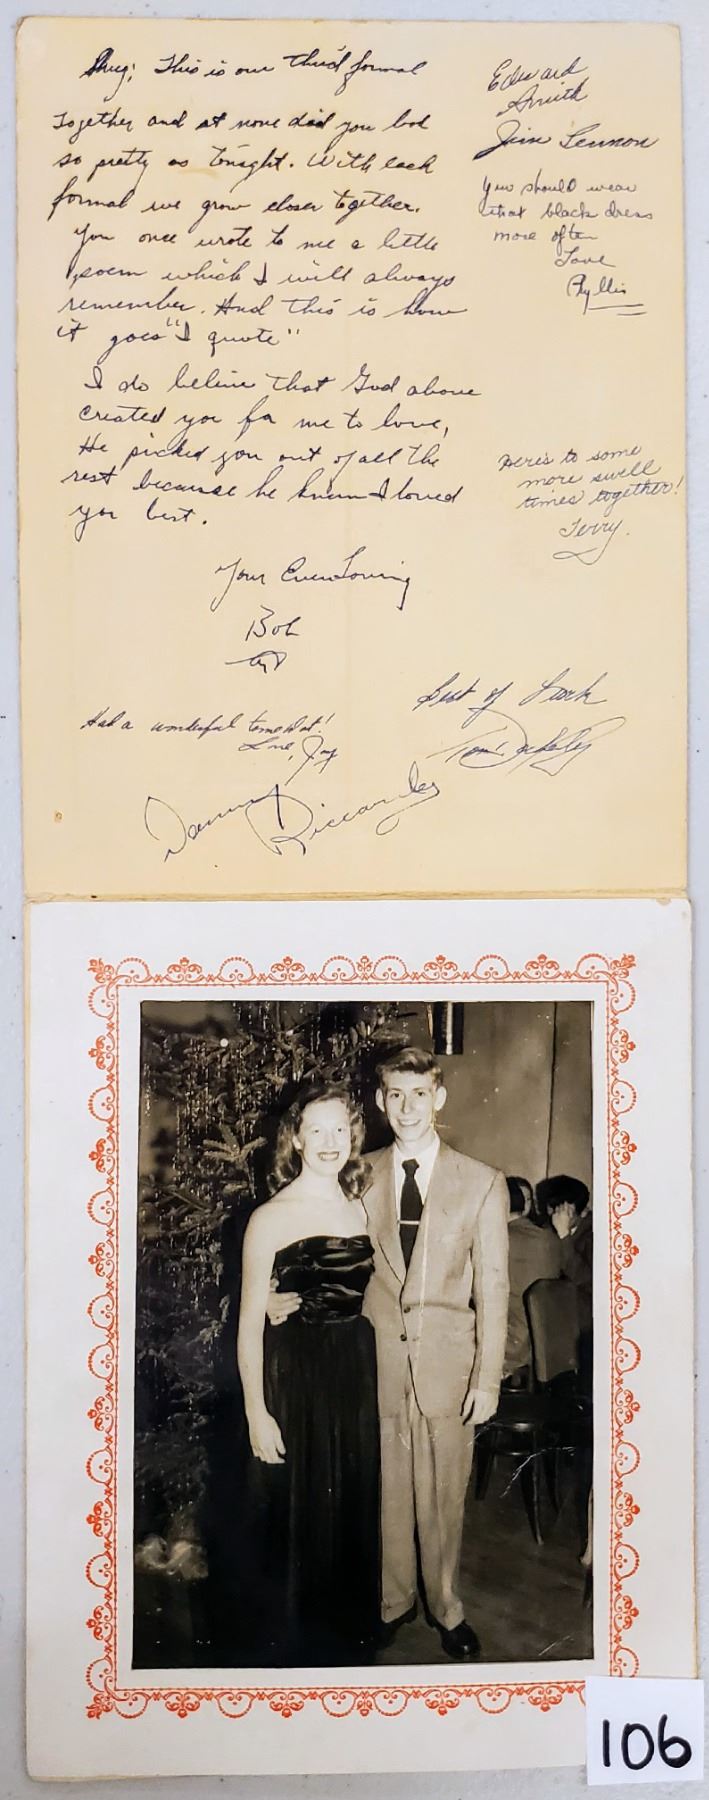 This is our third formal
Together and at none did you look
so pretty as Tonight. With each
formal we grow closer together.
You once wrote to me a little
poem which I will always
remember. And this is how
it goes "I quote"
I do believe that God above
Created you for me to love,
He picked you out of all the
rest because he knew I loved
you best.
Your Ever Loving
Bob
Edward
Smith
Jim Lennon
You should wear
that black dress
more often
Love
Phyllis
Here's to some
more swell
times together!
Terry.
Best of Luck
Tom
Had a wonderful time
Love, Joy
Danny Riccardo
106